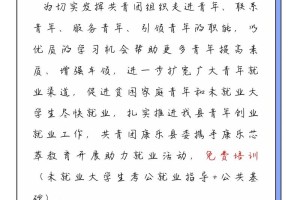 为切实发挥共青团组织走进青年、联系
青年、服务青年、引领青年的职能，以
优质的学习机会帮助更多青年提高素
质、增强本领，进一步扩宽广大青年就
业渠道，促进贫困家庭青年和未就业大
学生尽快就业，扎实推进我县青年创业
就业工作，共青团康乐县委携手康乐芯
荞教育开展助力就业活动，免费培训
（未就业大学生考公就业指导+公共基
础）